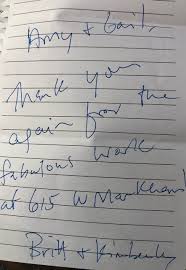 Amy + Gail,
Thank you
again for the
fabulous work
at 615 W Markham!
Britt + Kimberly